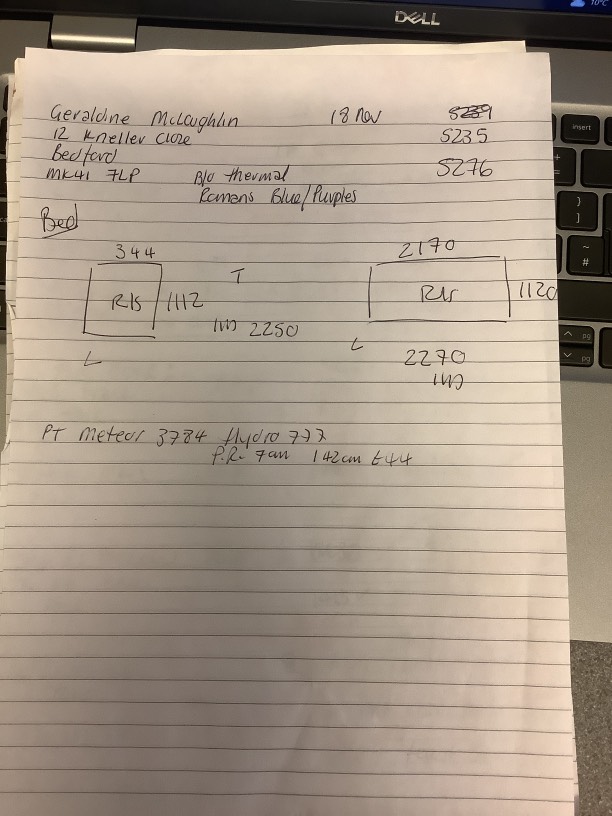 DELL
10°C
insert
Geraldine McLaughlin 18 Nov
12 Kneller Close S235
Bedford S276
MK41 7LP B/O thermal
Romans Blue/Purples
Bed
344 2170
R/s 1112 T R/s 1120
2250
L L 2270
PT Meteor 3784 Hydro 777
P.R. 7cm 142cm £44